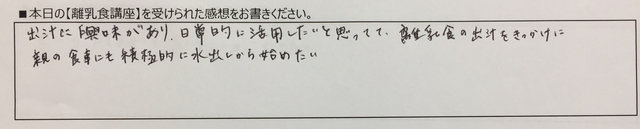 ■本日の【離乳食講座】を受けられた感想をお書きください。
出汁に興味があり、日常的に活用したいと思ってて、離乳食の出汁をきっかけに
親の食事にも積極的に水出しから始めたい